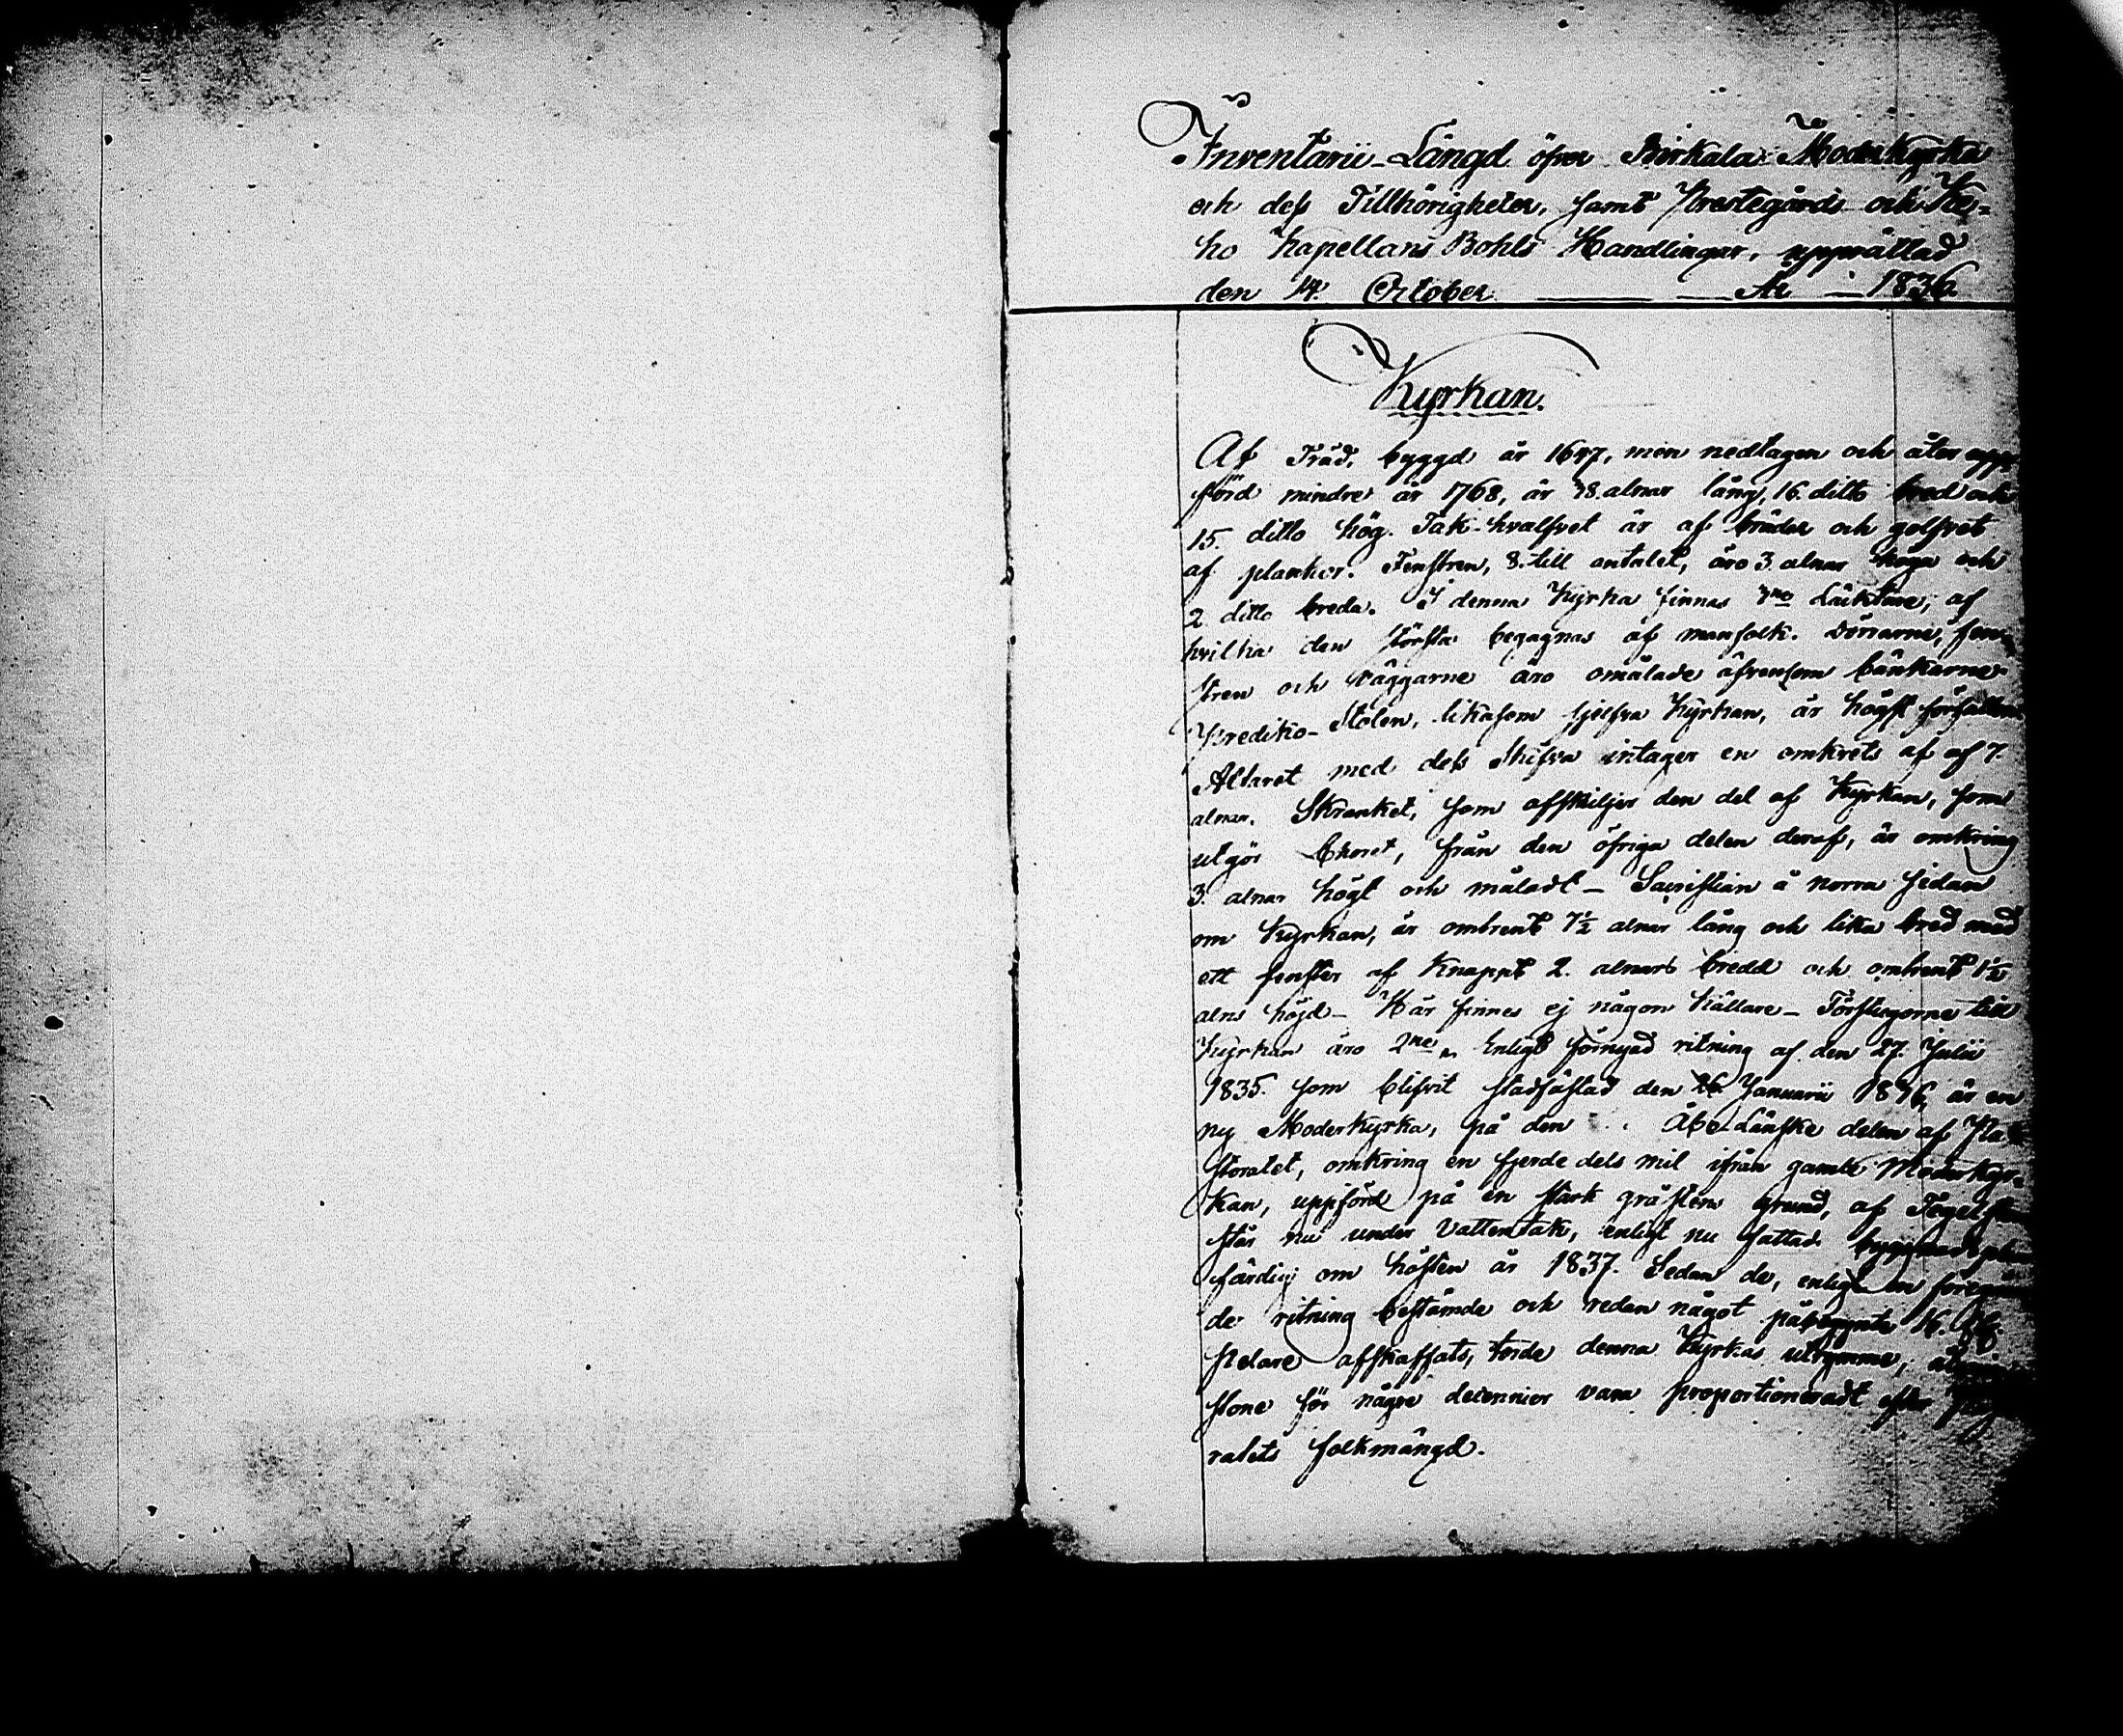 Inventarii-Längd öfver Birkala Moderkyrka
och dess Tillhörigheter, samt Prestegårds och Ke-
ho Kapellans Bohls Handlingar, upprättad
den 14. October År 1836
Kyrkan.
Af Träd, byggd år 1647, men nedtagen och åter upp-
förd mindre år 1768, är 38. alnar lång, 16. ditto bred och
15. ditto hög. Tak-hvalfvet är af bräder och golfvet
af plankor. Fenstren, 8. till antalet, äro 3. alnar höga och
2 ditto breda. I denna Kyrka finnas Läktare, af
hvilka den största begagnas af manfolk. Dörrarne, fen-
stren och väggarne äro omålade äfvensom bänkarne
Prediko-Stolen, likasom sjelfva Kyrkan, är högst förfallen
Altaret med dess Skifva intager en omkrets af af 7.
alnar. Skranket, som afskiljer den del af Kyrkan, som
utgör Choret, från den öfriga delen deraf, är omkring
3. alnar högt och måladt – Sacristian å norra sidan
om Kyrkan, är ombrent 7½ alnar lång och lika bred med
ett fenster af knappt 2. alnars bredd och ombrent 1½
alns höjd – Här finnes ej någon källare – Förstugorne till
Kyrkan äro 2ne. Enligt förnyad ritning af den 27. Julii
1835. som blifvit stadfästad den 26 Januarii 1836, är en
ny Moderkyrka, på den Åbo-Länske delen af Pa-
storatet, omkring en fjerdedels mil ifrån gamla Moderkyr-
kan, uppförd på en stark gråstens grund, af Tegelsten
står nu under Vattentak, enligt nu fattad byggnadsplan
färdig om hösten år 1837. Sedan de, enligt en föregåen
de ritning bestämde och redan något påbegynte 16.
pelare afskaffats, torde denna Kyrkas utrymme,
stone för någre decennier vara proportioneradt efter
ratets folkmängd.